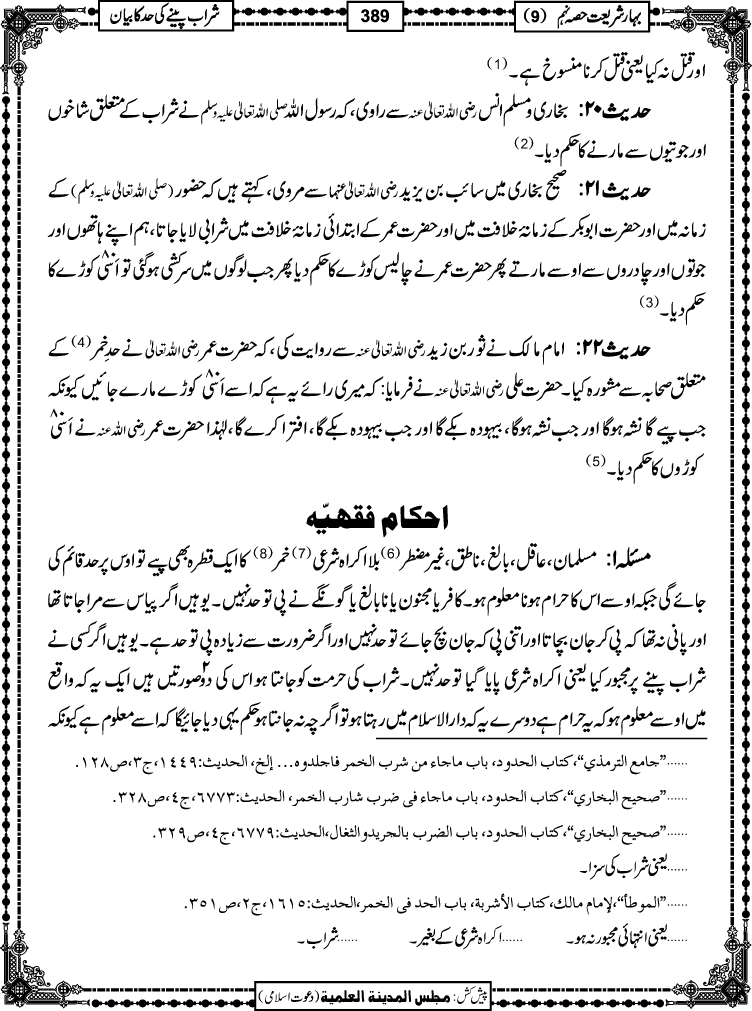 بہارِشریعت حصہ نہم (9)
389
شراب پینے کی حد کا بیان
اور قتل نہ کیا یعنی قتل کرنا منسوخ ہے۔ (1)
حدیث ۲۰: بخاری و مسلم انس رضی اللہ تعالیٰ عنہ سے راوی، کہ رسول اللہ صلی اللہ تعالیٰ علیہ وسلم نے شراب کے متعلق شاخوں
اور جوتیوں سے مارنے کا حکم دیا۔ (2)
حدیث ۲۱: صحیح بخاری میں سائب بن یزید رضی اللہ تعالیٰ عنہما سے مروی، کہتے ہیں کہ حضور (صلی اللہ تعالیٰ علیہ وسلم) کے
زمانہ میں اور حضرت ابوبکر کے زمانۂ خلافت میں اور حضرت عمر کے ابتدائی زمانۂ خلافت میں شرابی لایا جاتا، ہم اپنے ہاتھوں اور
جوتوں اور چادروں سے اوسے مارتے پھر حضرت عمر نے چالیس کوڑے کا حکم دیا پھر جب لوگوں میں سرکشی ہوگئی تو اَسّی ۸۰ کوڑے کا
حکم دیا۔ (3)
حدیث ۲۲: امام مالک نے ثور بن زید رضی اللہ تعالیٰ عنہ سے روایت کی، کہ حضرت عمر رضی اللہ تعالیٰ نے حدِ خمر (4) کے
متعلق صحابہ سے مشورہ کیا۔ حضرت علی رضی اللہ تعالیٰ عنہ نے فرمایا: کہ میری رائے یہ ہے کہ اسے اَسّی ۸۰ کوڑے مارے جائیں کیونکہ
جب پیے گا نشہ ہوگا اور جب نشہ ہوگا، بیہودہ بکے گا اور جب بیہودہ بکے گا، افترا کرے گا، لہٰذا حضرت عمر رضی اللہ عنہ نے اَسّی ۸۰
کوڑوں کا حکم دیا۔ (5)
احکام فقہیّہ
مسئلہ ۱: مسلمان، عاقل، بالغ، ناطق، غیر مضطر (6) بلا اکراہ شرعی (7) خمر (8) کا ایک قطرہ بھی پیے تو اوس پر حد قائم کی
جائے گی جبکہ اوسے اس کا حرام ہونا معلوم ہو۔ کافر یا مجنون یا نابالغ یا گونگے نے پی تو حد نہیں۔ یوہیں اگر پیاس سے مرا جاتا تھا
اور پانی نہ تھا کہ پی کر جان بچاتا اور اتنی پی کہ جان بچ جائے تو حد نہیں اور اگر ضرورت سے زیادہ پی تو حد ہے۔ یوہیں اگر کسی نے
شراب پینے پر مجبور کیا یعنی اکراہ شرعی پایا گیا تو حد نہیں۔ شراب کی حرمت کو جانتا ہو اس کی دو ۲ صورتیں ہیں ایک یہ کہ واقع
میں اوسے معلوم ہو کہ یہ حرام ہے دوسرے یہ کہ دارالاسلام میں رہتا ہو تو اگرچہ نہ جانتا ہو حکم یہی دیا جائیگا کہ اسے معلوم ہے کیونکہ
......”جامع الترمذي“، كتاب الحدود، باب ماجاء من شرب الخمر فاجلدوه... إلخ، الحديث:١٤٤٩، ج٣، ص١٢٨.
......”صحيح البخاري“، كتاب الحدود، باب ماجاء فى ضرب شارب الخمر، الحديث:٦٧٧٣، ج٤، ص٣٢٨.
......”صحيح البخاري“، كتاب الحدود، باب الضرب بالجريد والثغال، الحديث:٦٧٧٩، ج٤، ص٣٢٩.
......یعنی شراب کی سزا۔
......”الموطأ“، لإمام مالك، كتاب الأشربة، باب الحد فى الخمر، الحديث:١٦١٥، ج٢، ص٣٥١.
......یعنی انتہائی مجبور نہ ہو۔ ......اکراہ شرعی کے بغیر۔ ......شراب۔
پیش کش: مجلس المدینۃ العلمیۃ (دعوت اسلامی)